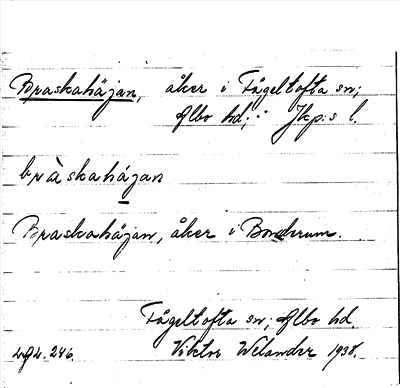 Braskahäjan, åker i Fågeltofta sn;
Albo hd; Jkp:s l.
bràskahájan
Braskahäjan, åker i Bondrum.
Fågeltofta sn; Albo hd.
246. Viktor Welander 1938.